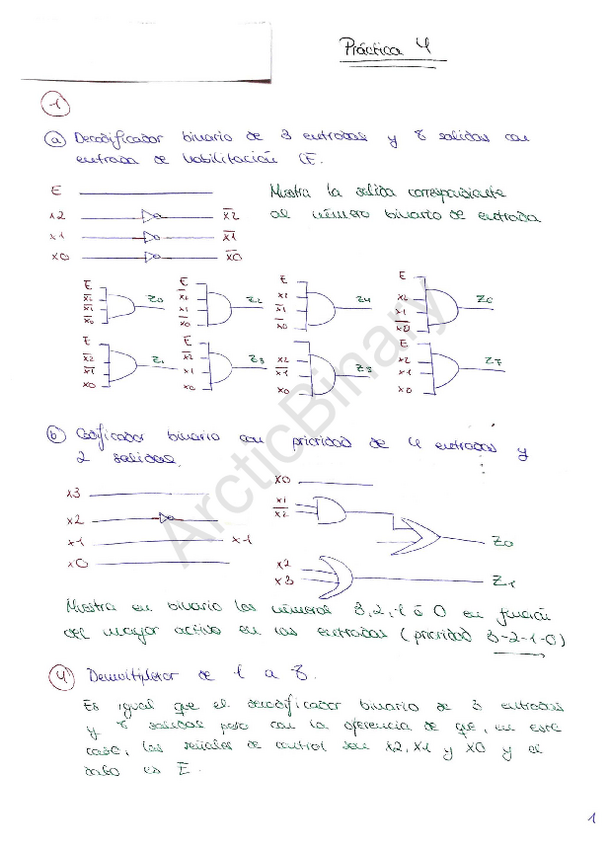 Práctica 4
1
a) Decodificador binario de 3 entradas y 8 salidas con
entrada de habilitación (E.
E
x2 x̅2̅
x1 x̅1̅
x0 x̅0̅
Muestra la salida correspondiente
al número binario de entrada
E E E E
x̅2̅ x̅2̅ x2 x2
x̅1̅ x1 x̅1̅ x1
x̅0̅ x̅0̅ x̅0̅ x̅0̅
Z0 Z2 Z4 Z6
E E x2 E
x̅2̅ x̅2̅ x̅1̅ x2
x̅1̅ x1 x0 x1
x0 x0 x0
Z1 Z3 Z5 Z7
b) Codificador binario con prioridad de 4 entradas y
2 salidas.
x3
x2
x1 x1
x0
x0
x1
x̅2̅
Z0
x2
x3
Z1
Muestra en binario los números 3, 2, 1 ó 0 en función
del mayor activo en las entradas (prioridad 3-2-1-0)
4 Demultiplexor de 1 a 8.
Es igual que el decodificador binario de 3 entradas
y 8 salidas pero con la diferencia de que, en este
caso, las señales de control son x2, x1 y x0 y el
dato es E.
1
ArcticBinary